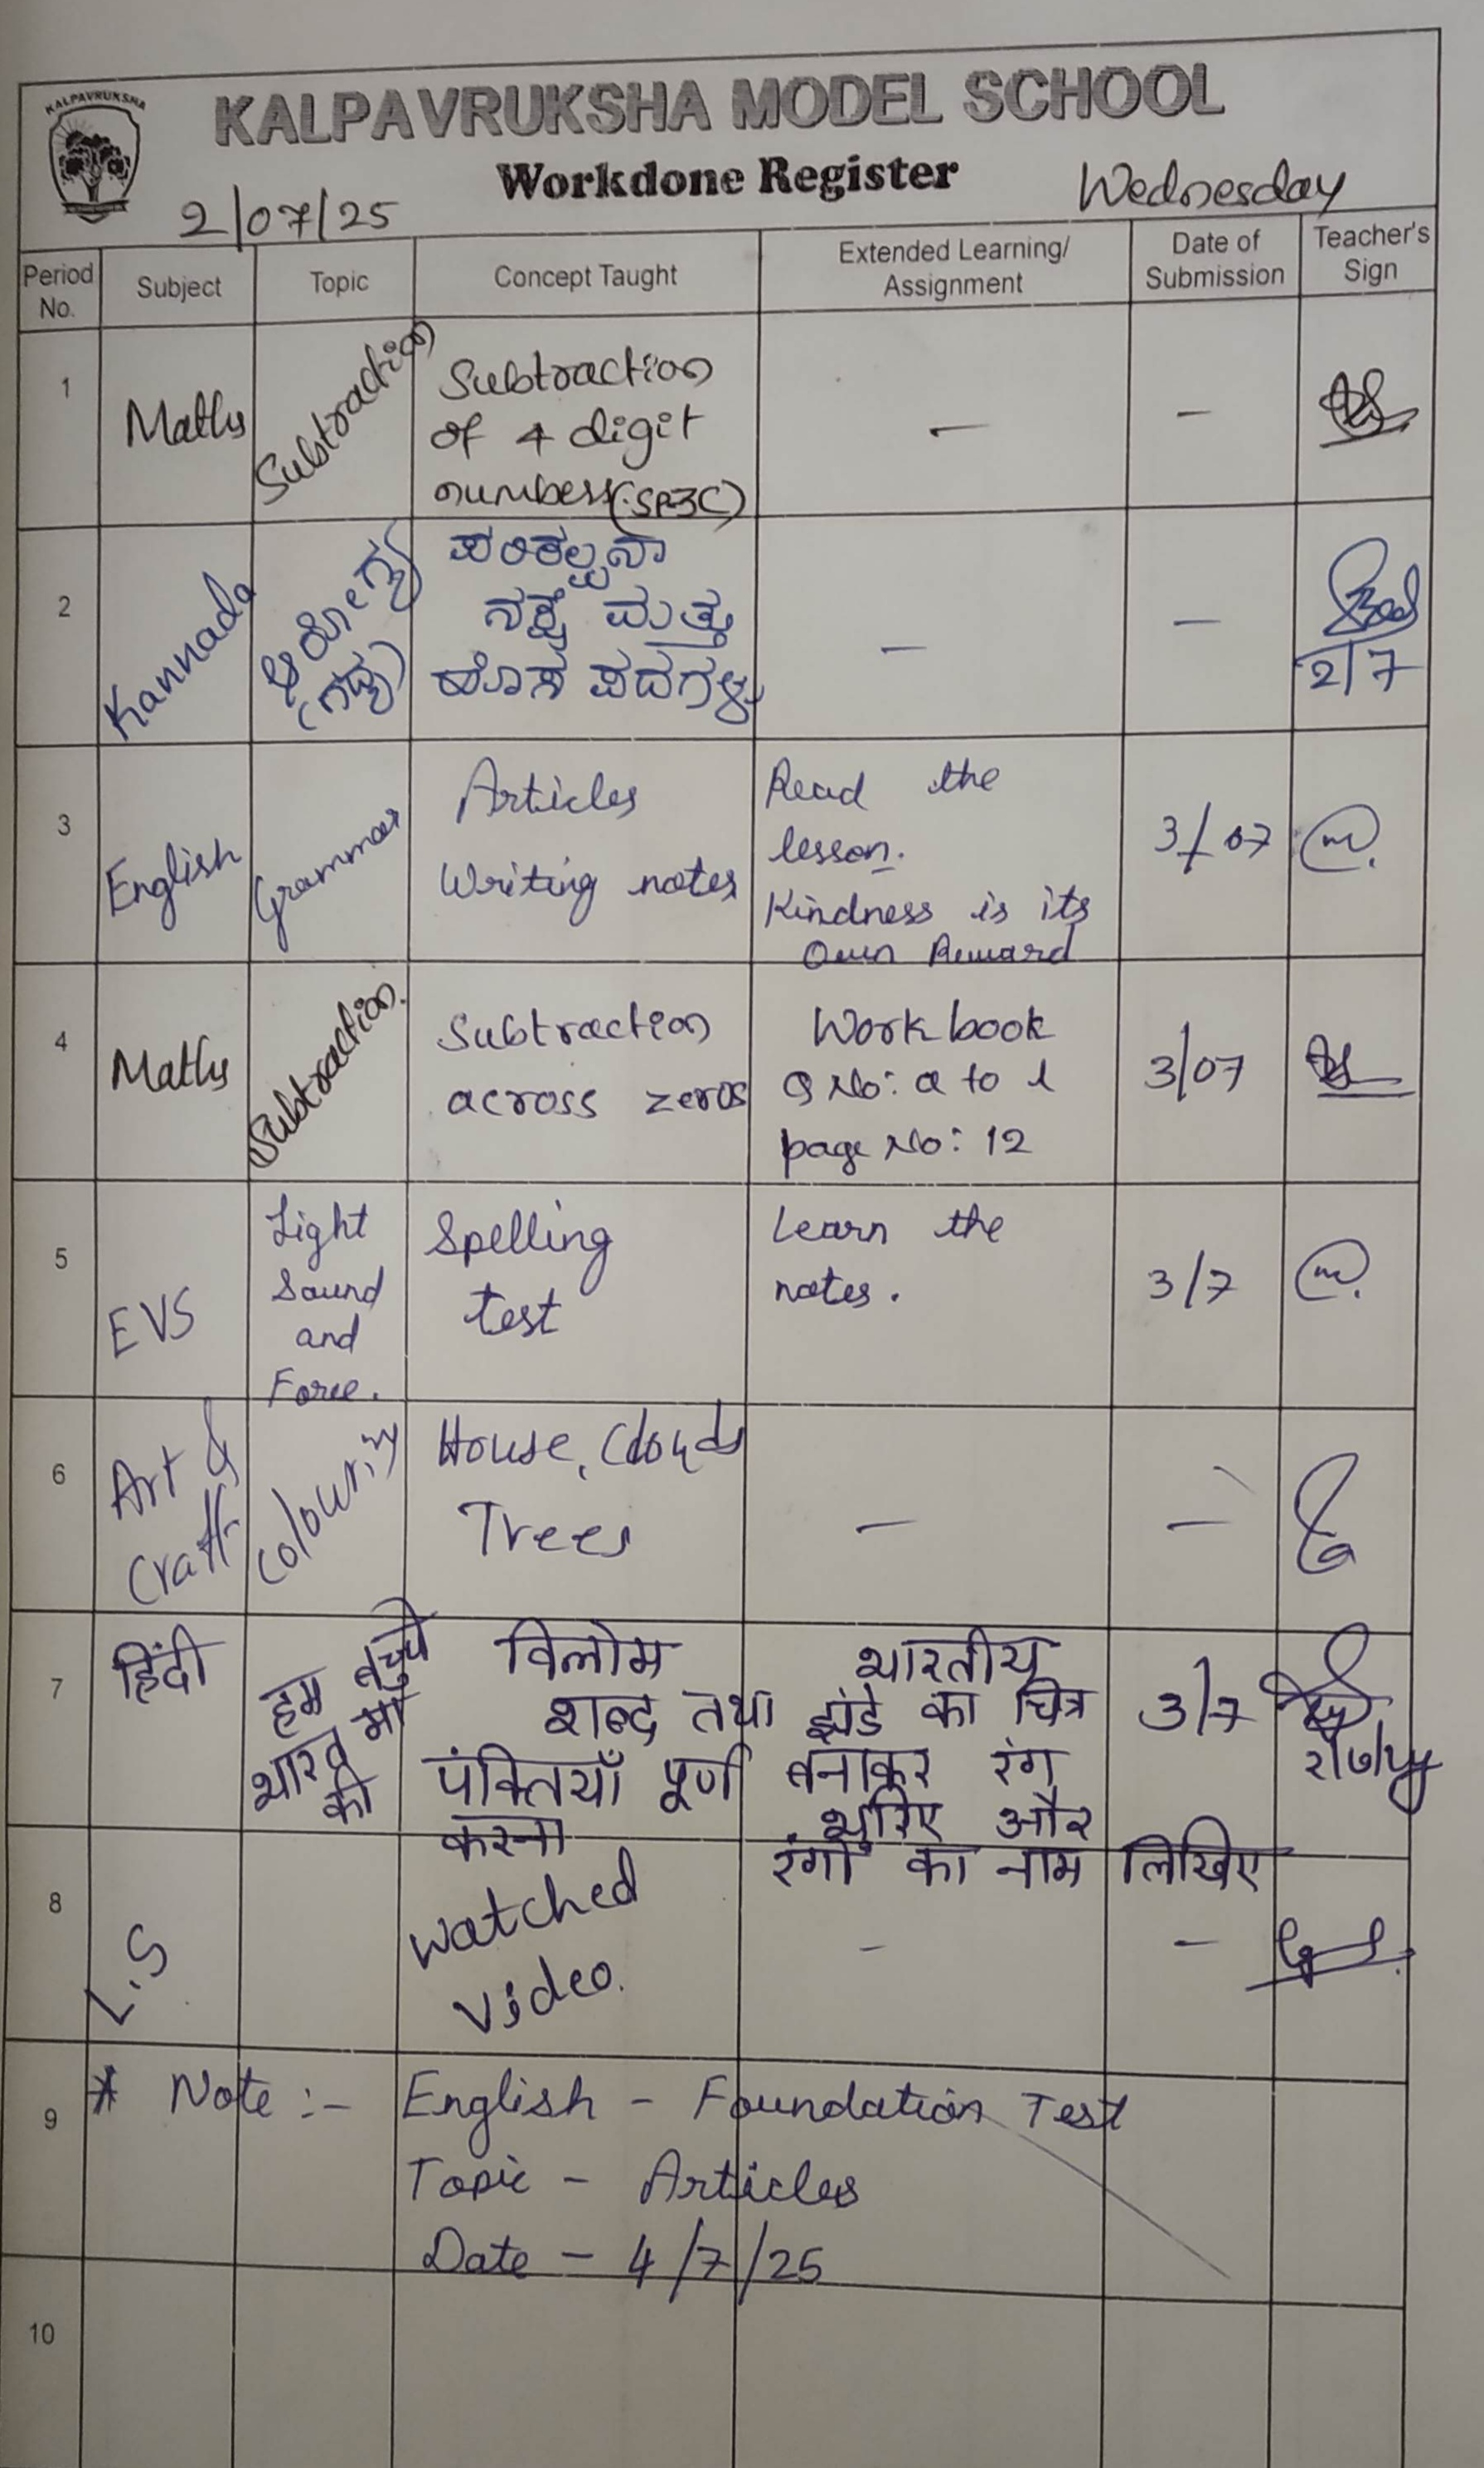 KALPAVRUKSHA
KALPAVRUKSHA MODEL SCHOOL
Workdone Register
2/07/25
Wednesday
Period No.
Subject
Topic
Concept Taught
Extended Learning/
Assignment
Date of
Submission
Teacher's
Sign
1
Maths
Subtraction
Subtraction
of 4 digit
numbers
—
—
2
Kannada
ಆರೋಗ್ಯ
(ಗದ್ಯ)
ಪರಿಕಲ್ಪನಾ
ನಕ್ಷೆ ಮತ್ತು
ಹೊಸ ಪದಗಳು
—
—
2/7
3
English
Grammar
Articles
Writing notes
Read the
lesson.
Kindness is its
Own Reward
3/07
4
Maths
Subtraction.
Subtraction
across zeros
Work book
Q No: a to l
page No: 12
3/07
5
EVS
Light
Sound
and
Force.
Spelling
test
Learn the
notes.
3/7
6
Art &
Craft
Colouring
House, Clouds
Trees
—
—
7
हिंदी
हम बच्चे
भारत माँ
की
विलोम
शब्द तथा
पंक्तियाँ पूर्ण
करना
भारतीय
झंडे का चित्र
बनाकर रंग
भरिए और
रंगों का नाम लिखिए
3/7
8
L.S
watched
video.
—
—
9
* Note :- English - Foundation Test
Topic - Articles
Date - 4/7/25
10